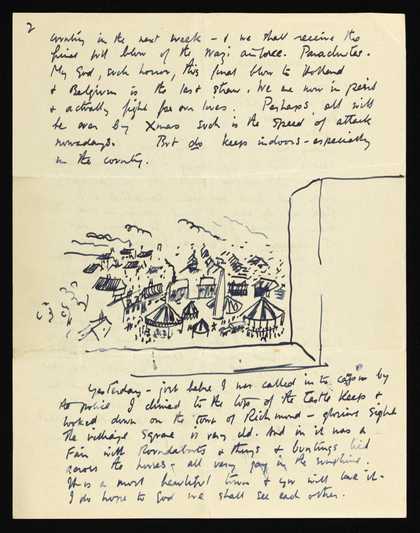 2
country in the next week - & we shall receive the
final full blow of the Nazi airforce. Parachutes.
My God, such horror, this final blow to Holland
& Belgium is the last straw. We are now in peril
& actually fight for our lives. Perhaps all will
be over by Xmas such is the speed of attack
nowadays. But do keep indoors - especially
in the country.
Yesterday - just before I was called in to by
the police I climed to the top of the Castle Keep &
looked down on the town of Richmond - glorious sight
The village square is very old. And in it was a
Fair with Roundabouts & things & buntings tied
across the houses, all very gay in the sunshine.
It is a most beautiful town & you will love it.
I do hope to God we shall see each other.